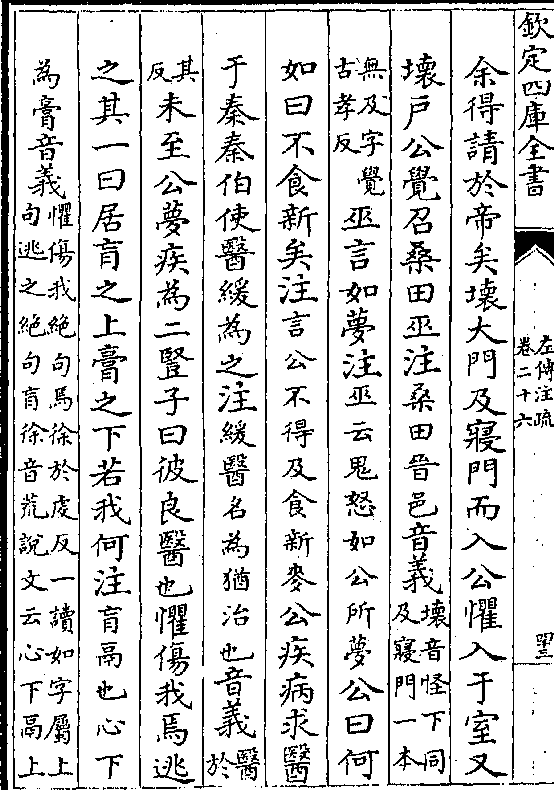 欽定四庫全書
左傳注疏
卷二十六
四三
余得請於帝矣壞大門及寢門而入公懼入于室又
壞戶公覺召桑田巫注桑田晉邑音義壞音怪下同
及寢門一本
無及字覺
古孝反
巫言如夢注巫云鬼怒如公所夢公曰何
如曰不食新矣注言公不得及食新麥公疾病求醫
于秦秦伯使醫緩為之注緩醫名為猶治也音義醫
於
其
反
未至公夢疾為二豎子曰彼良醫也懼傷我焉逃
之其一曰居肓之上膏之下若我何注肓鬲也心下
為膏音義懼傷我絶句焉徐於虔反一讀如字屬上
句逃之絶句肓徐音荒說文云心下鬲上